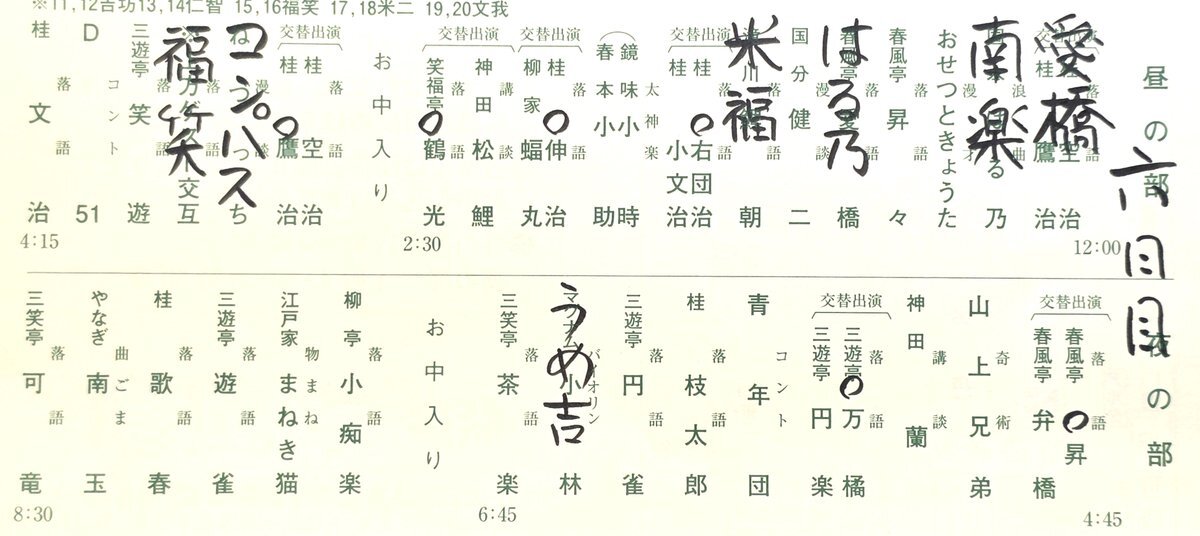 ※11,12吉坊13,14仁智 15,16福笑 17,18米二 19,20文我
昼の部
六日目
12:00
交替出演
愛橋
桂 空治
桂 鷹治
南楽
乃
おせつときょうた
春風亭 昇々 落語
はる乃
橋
国分健二 漫談
米福
朝
交替出演
桂 右団治 落語
桂 小文治
鏡味小時 太神楽
春本小助
交替出演
桂 伸治 落語
柳家蝠丸
交替出演
神田松鯉 講談
笑福亭 鶴光 落語
2:30
お中入り
交替出演
桂 空治 落語
桂 鷹治
コンパス
ねづっち 漫談
福笑
交互
三遊亭 笑遊 落語
D51 コント
桂 文治 落語
4:15
夜の部
4:45
交替出演
春風亭 昇 落語
春風亭 弁橋
山上兄弟 奇術
神田蘭 講談
交替出演
三遊亭 万橘 落語
三遊亭 円楽
青年団 コント
桂 枝太郎 落語
三遊亭 円雀 落語
うめ吉
マツナム小林 バイオリン
三笑亭 茶楽 落語
6:45
お中入り
柳亭小痴楽 落語
江戸家まねき猫 物まね
三遊亭 遊雀 落語
桂 歌春 落語
やなぎ南玉 曲ごま
三笑亭 可竜 落語
8:30